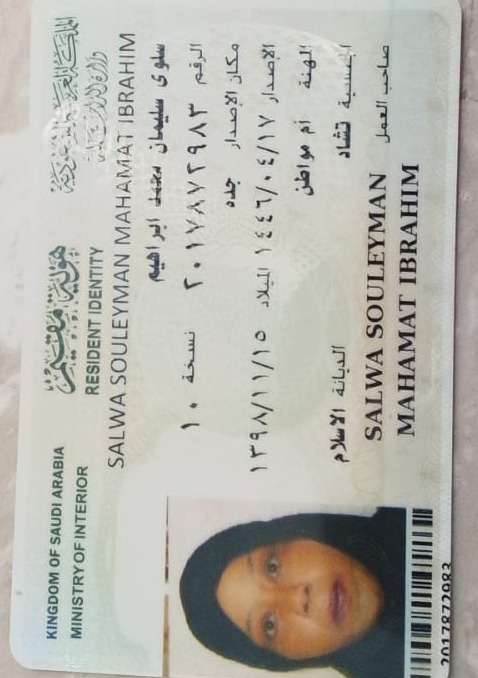 KINGDOM OF SAUDI ARABIA
MINISTRY OF INTERIOR
هوية مقيم
RESIDENT IDENTITY
المملكة العربية السعودية
وزارة الداخلية
SALWA SOULEYMAN MAHAMAT IBRAHIM
سلوى سليمان محمد ابراهيم
الرقم ٢٠١٧٨٧٢٩٨٣ نسخة ١٠
مكان الإصدار جده
الإصدار ١٤٤٦/٠٤/١٧ الميلاد ١٣٩٨/١١/١٥
المهنة أم مواطن
الجنسية تشاد الديانة الاسلام
صاحب العمل
SALWA SOULEYMAN
MAHAMAT IBRAHIM
2017872983